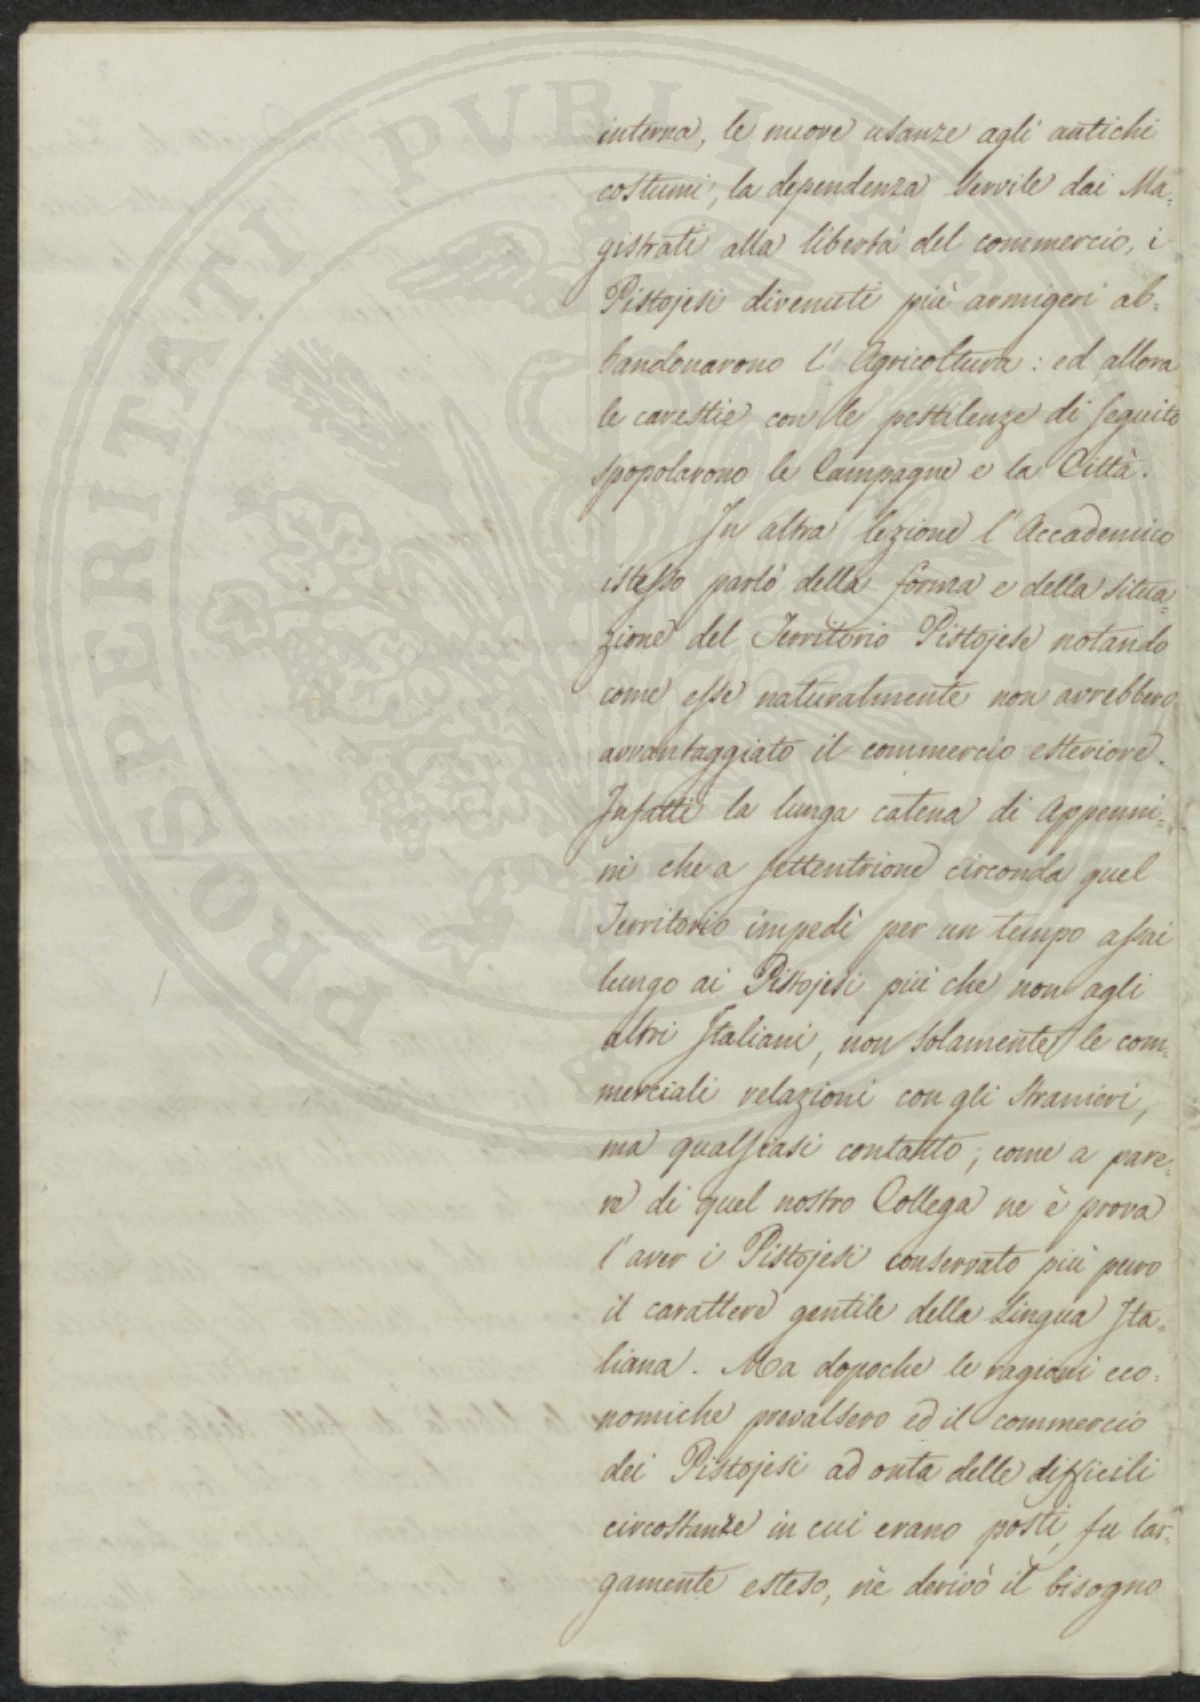 interna, le nuove usanze agli antichi
costumi, la dependenza servile dai Ma=
gistrati alla libertà del commercio, i
Pistojesi divenuti più armigeri ab=
bandonarono l'Agricoltura: ed allora
le carestie con le pestilenze di seguito
spopolarono le Campagne e la Città.
In altra lezione l'Accademico
istesso parlò della forma e della situa=
zione del Territorio Pistojese notando
come esse naturalmente non avrebbero
avvantaggiato il commercio esteriore.
Infatti la lunga catena di Appenni=
ni che a settentrione circonda quel
Territorio impedì per un tempo assai
lungo ai Pistojesi più che non agli
altri Italiani, non solamente le com=
merciali relazioni con gli Stranieri,
ma qualsiasi contatto; come a pare=
re di quel nostro Collega ne è prova
l'aver i Pistojesi conservato più puro
il carattere gentile della Lingua Ita=
liana. Ma dopoche le ragioni eco=
nomiche prevalsero ed il commercio
dei Pistojesi ad onta delle difficili
circostanze in cui erano posti, fu lar=
gamente esteso, ne derivò il bisogno
PROSPERITATI PUBLICAE